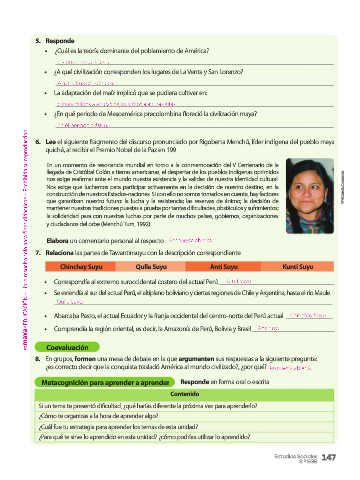 5. Responde
• ¿Cuál es la teoría dominante del poblamiento de América?
• ¿A qué civilización corresponden los lugares de La Venta y San Lorenzo?
• La adaptación del maíz implicó que se pudiera cultivar en:
• ¿En qué período de Mesoamérica precolombina floreció la civilización maya?
6. Lee el siguiente fragmento del discurso pronunciado por Rigoberta Menchú, líder indígena del pueblo maya
quiché, al recibir el Premio Nobel de la Paz en 199
En un momento de resonancia mundial en torno a la conmemoración del V Centenario de la
llegada de Cristóbal Colón a tierras americanas, el despertar de los pueblos indígenas oprimidos
nos exige reafirmar ante el mundo nuestra existencia y la validez de nuestra identidad cultural.
Nos exige que luchemos para participar activamente en la decisión de nuestro destino, en la
construcción de nuestros Estados-naciones. Si con ello no somos tomados en cuenta, hay factores
que garantizan nuestro futuro: la lucha y la resistencia; las reservas de ánimo; la decisión de
mantener nuestras tradiciones puestas a prueba por tantas dificultades, obstáculos y sufrimientos;
la solidaridad para con nuestras luchas por parte de muchos países, gobiernos, organizaciones
y ciudadanos del orbe (Menchú Tum, 1992).
Elabora un comentario personal al respecto.
7. Relaciona las partes de Tawantinsuyu con la descripción correspondiente
Chinchay Suyu Qulla Suyu Anti Suyu Kunti Suyu
• Correspondía al extremo suroccidental costero del actual Perú
• Se extendía al sur del actual Perú, el altiplano boliviano y ciertas regiones de Chile y Argentina, hasta el río Maule
• Abarcaba Pasto, el actual Ecuador y la franja occidental del centro-norte del Perú actual
• Comprendía la región oriental, es decir, la Amazonía de Perú, Bolivia y Brasil
Coevaluación
8. En grupos, formen una mesa de debate en la que argumenten sus respuestas a la siguiente pregunta:
¿es correcto decir que la conquista trasladó América al mundo civilizado?, ¿por qué?
Metacognición para aprender a aprender Responde en forma oral o escrita
Contenido
Si un tema te presentó dificultad, ¿qué harías diferente la próxima vez para aprenderlo?
¿Cómo te organizas a la hora de aprender algo?
¿Cuál fue tu estrategia para aprender los temas de esta unidad?
¿Para qué te sirve lo aprendido en esta unidad? ¿cómo podrías utilizar lo aprendido?
Estudios Sociales 147